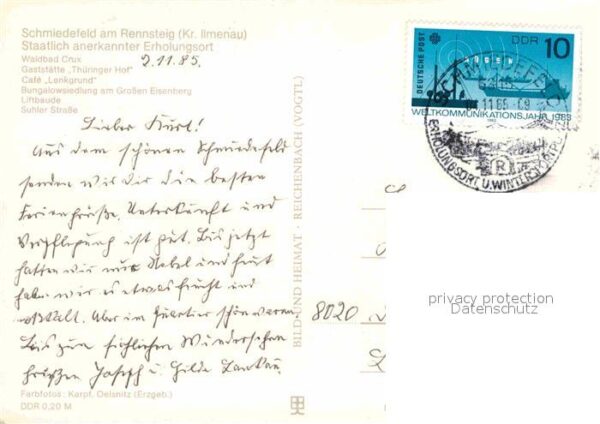 Schmiedefeld am Rennsteig (Kr. Ilmenau)
Staatlich anerkannter Erholungsort
Waldbad Crux
Gaststätte „Thüringer Hof"
Café „Lenkgrund"
Bungalowsiedlung am Großen Eisenberg
Liftbaude
Suhler Straße
2.11.85.
Lieber Kurt!
Aus dem schönen Schmiedefeld
senden wir dir die besten
Feriengrüße. Unterkunft und
Verpflegung ist gut. Bis jetzt
hatten wir nur Nebel und heut
haben wir es etwas feucht und
kalt. Aber im Quartier schön warm.
Bis zum fröhlichen Wiedersehen
grüßen Joseph u. Hilde
Farbfotos: Karpf, Oelsnitz (Erzgeb.)
DDR 0,20 M
BILD UND HEIMAT · REICHENBACH (VOGTL)
8020
DEUTSCHE POST
DDR 10
RÜGEN
WELTKOMMUNIKATIONSJAHR 1983
SCHMIEDEFELD
11.85-09
ERHOLUNGSORT U. WINTERSPORTPL
R
privacy protection
Datenschutz